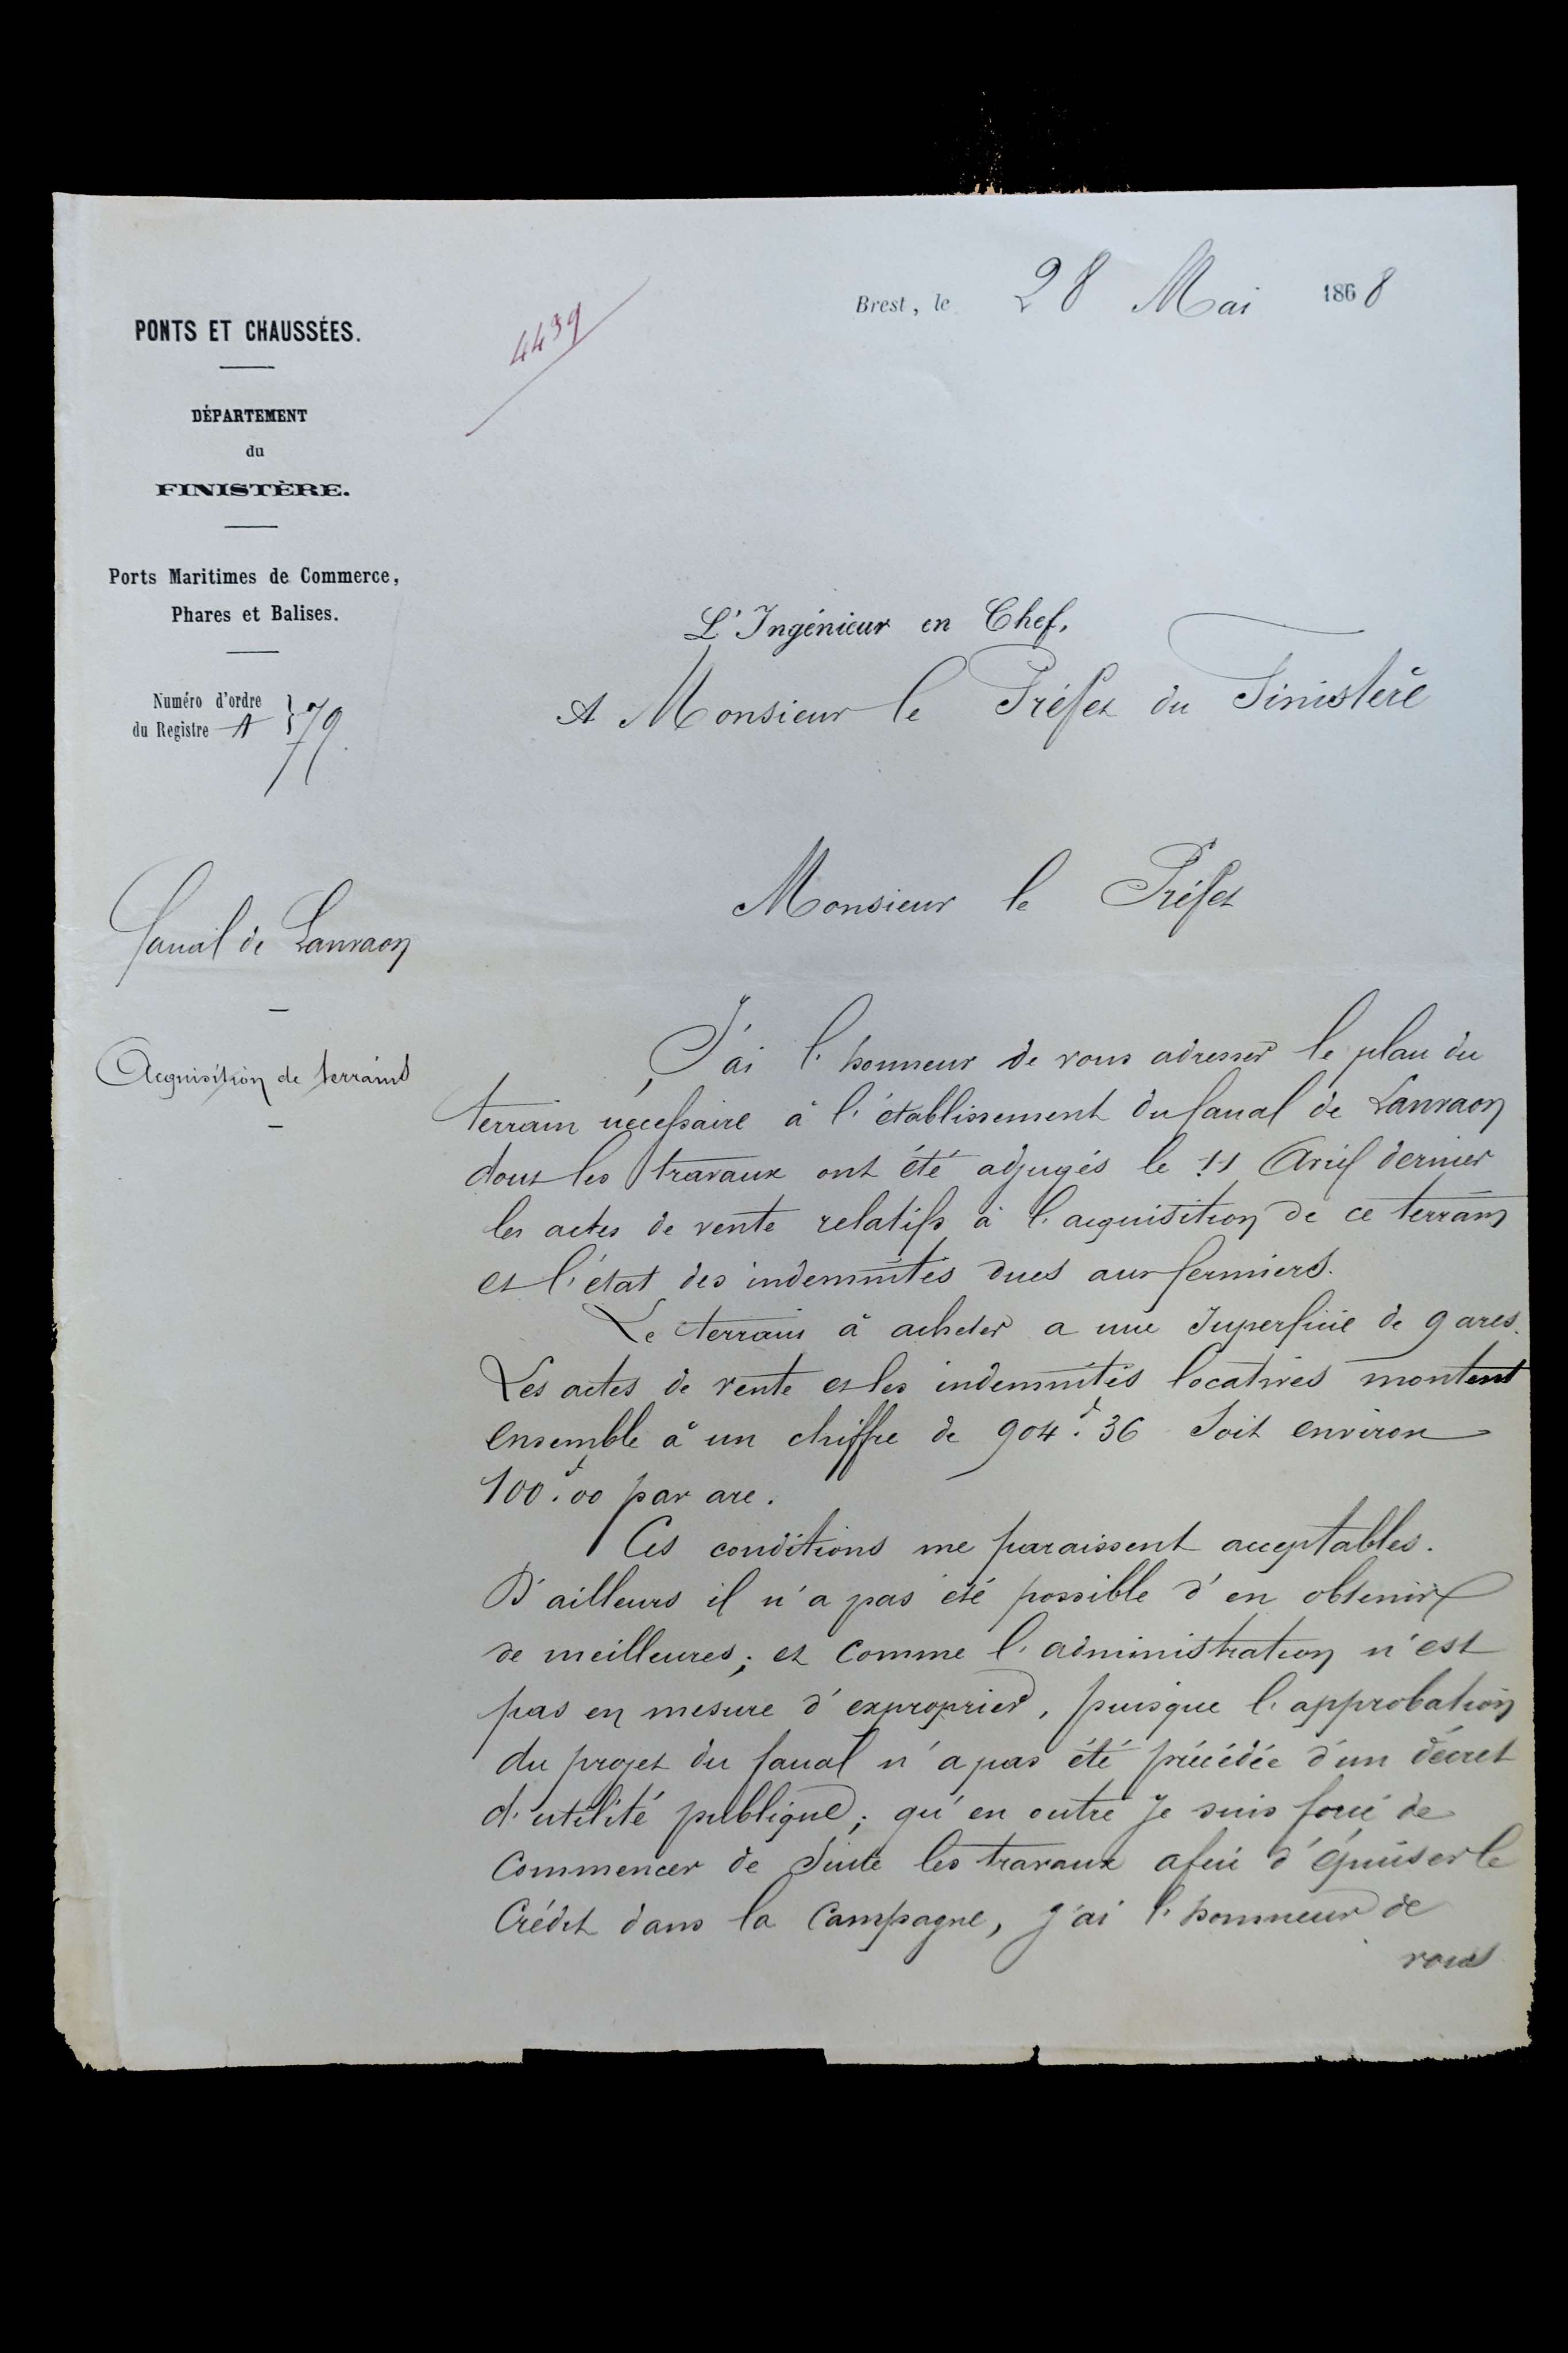 Brest, le 28 Mai 1868
PONTS ET CHAUSSÉES.
4439
DÉPARTEMENT
du
FINISTÈRE.
Ports Maritimes de Commerce,
Phares et Balises.
Numéro d'ordre
du Registre A } 79.
L'Ingénieur en Chef,
A Monsieur le Préfet du Finistère
Monsieur le Préfet
Fanal de Lanvaon
Acquisition de terrains
J'ai l'honneur de vous adresser le plan du
terrain nécessaire à l'établissement du fanal de Lanvaon
dont les travaux ont été adjugés le 11 Avril dernier
les actes de vente relatifs à l'acquisition de ce terrain
et l'état des indemnités dues aux fermiers.
Le terrain à acheter a une superficie de 9 ares.
Les actes de vente et les indemnités locatives montent
ensemble à un chiffre de 904f.36 soit environ
100f.00 par are.
Ces conditions me paraissent acceptables.
D'ailleurs il n'a pas été possible d'en obtenir
de meilleures; et comme l'administration n'est
pas en mesure d'exproprier, puisque l'approbation
du projet du fanal n'a pas été précédée d'un décret
d'utilité publique; qu'en outre je suis forcé de
commencer de suite les travaux afin d'épuiser le
Crédit dans la Campagne, j'ai l'honneur de
vous